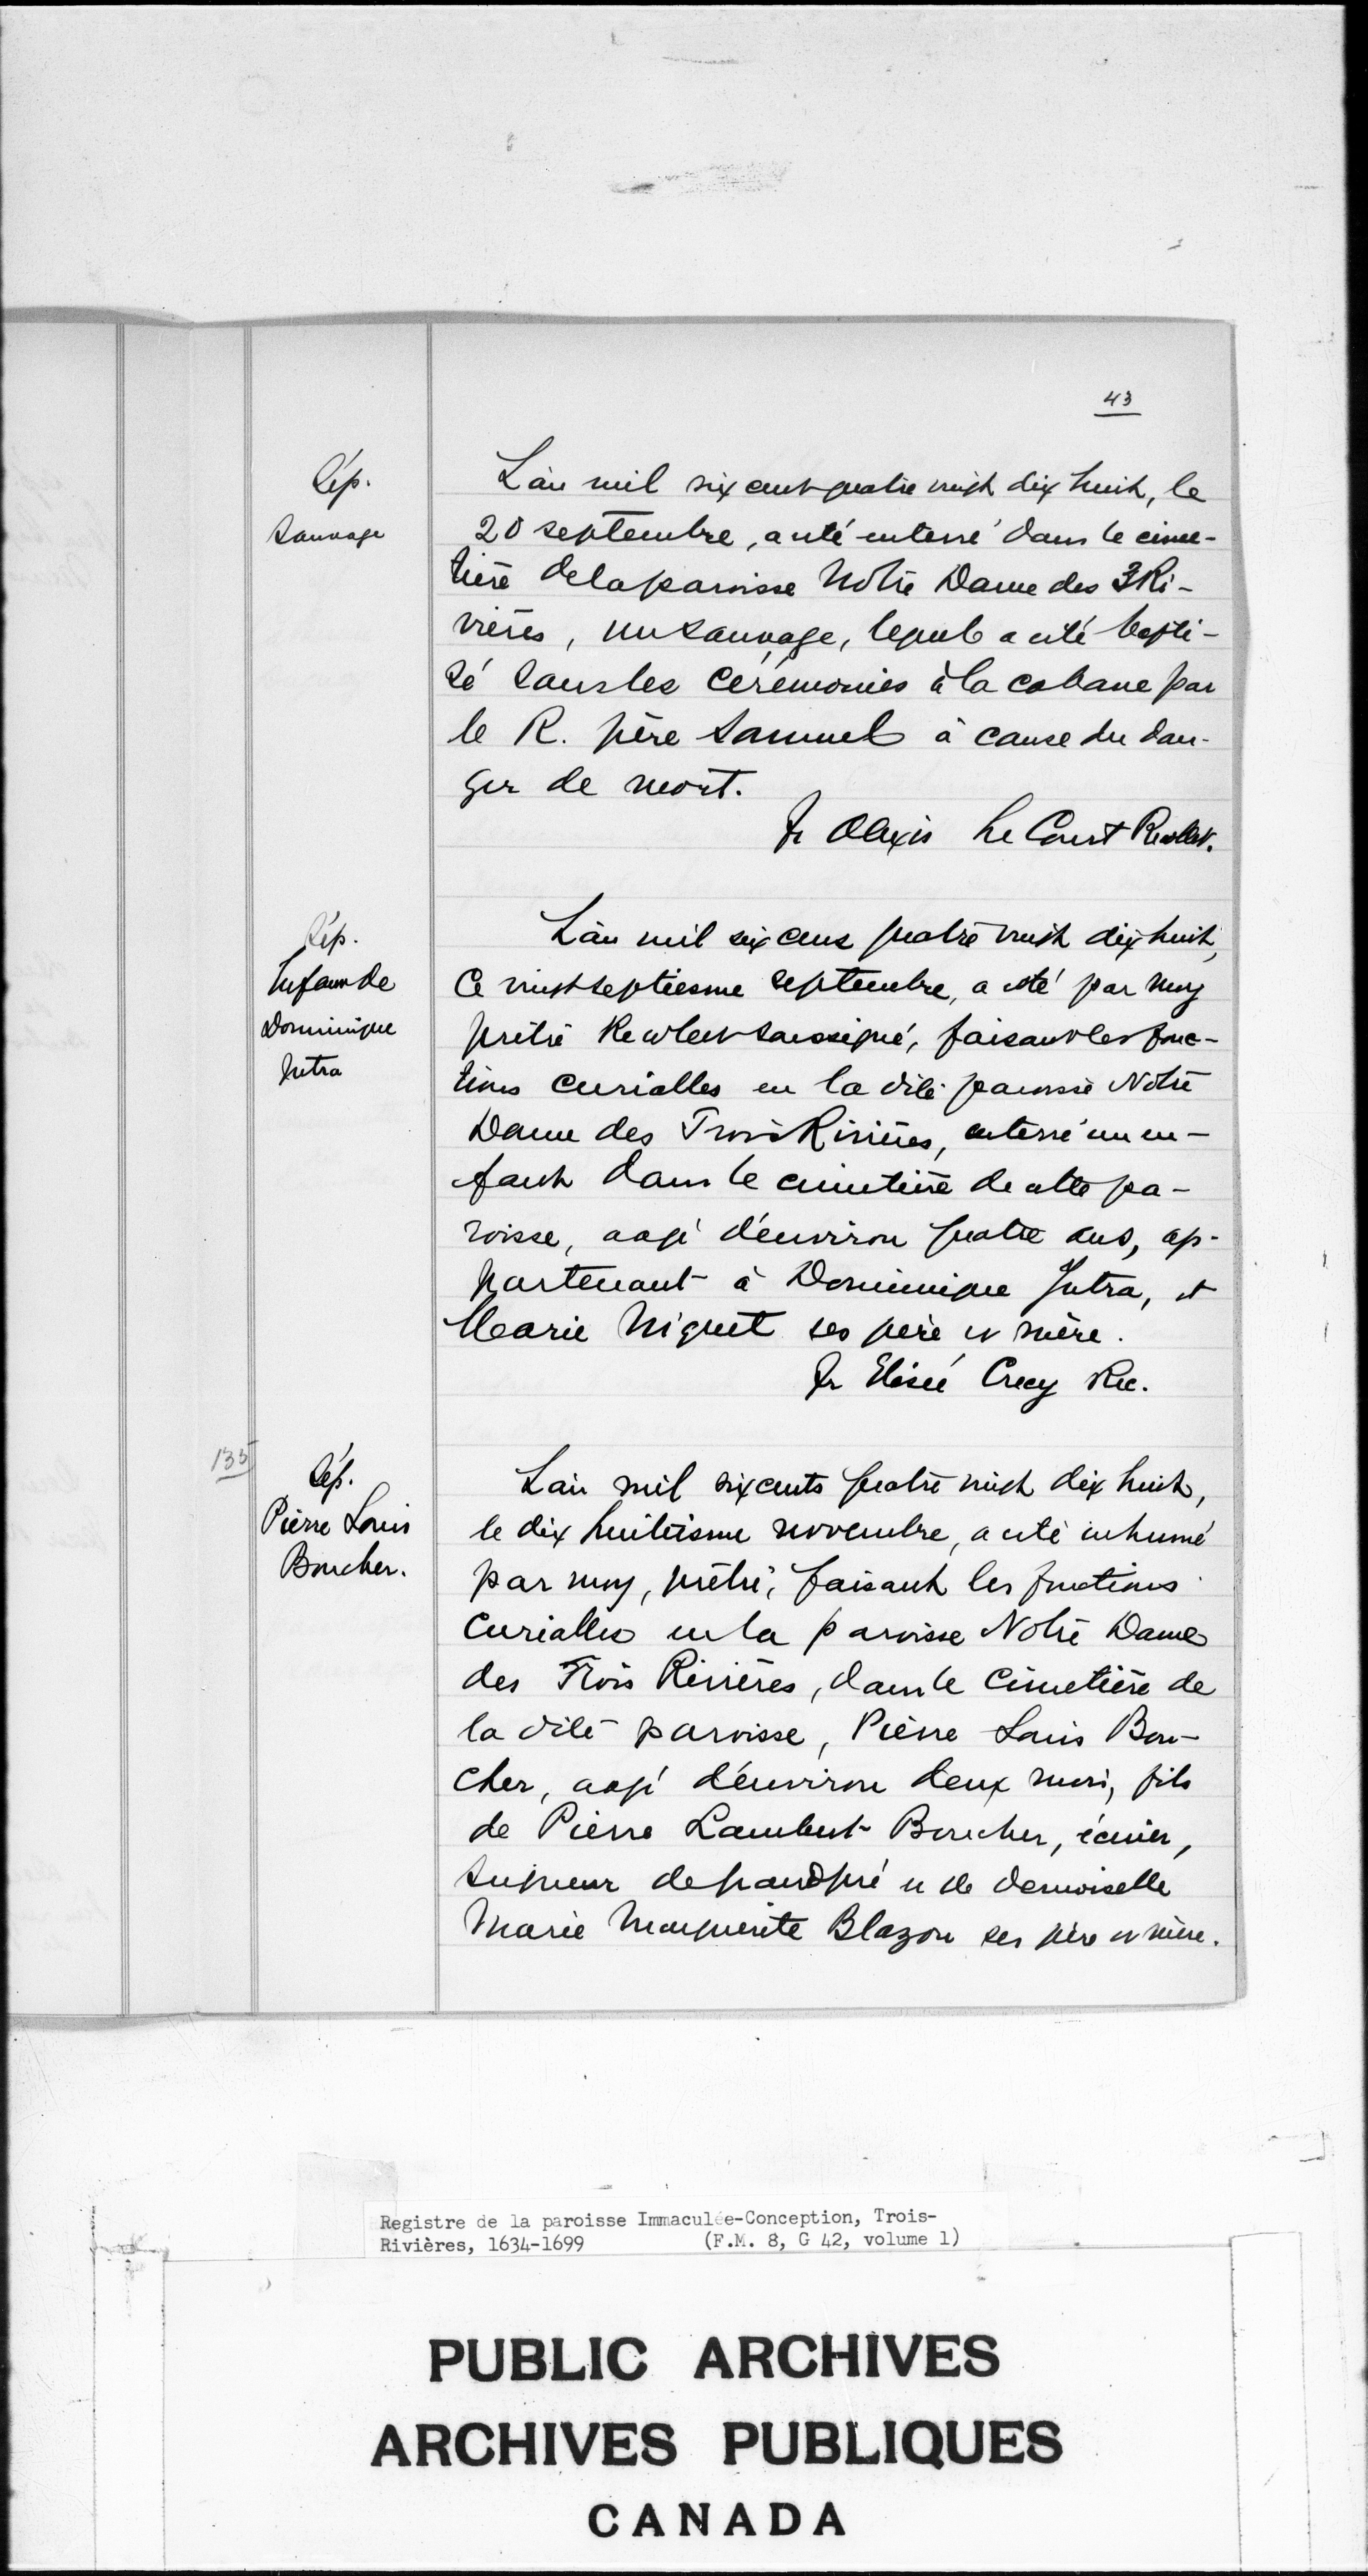 43
Sép.
Sauvage
L'an mil six cent quatre vingt dix huit, le
20 septembre, a été enterré dans le cime-
tière de la paroisse Notre Dame des 3 Ri-
vières, un sauvage, lequel a esté bapti-
sé sans les cérémonies à la cabane par
le R. père Samuel à cause du dan-
ger de mort.
fr Alexis Le Court Recollet.
Sép.
Enfant de
Dominique
Jutra
L'an mil six cens quatre vingt dix huit,
Ce vingt septiesme septembre, a esté par moy
prêtre Recollect soussigné, faisant les fonc-
tions curialles en la dite paroisse Notre
Dame des Trois Rivières, enterré un en-
fant dans le cimetière de cette pa-
roisse, aagé d'environ quatre ans, ap-
partenant à Dominique Jutra, et
Marie Niquet ses père et mère.
fr Elisée Crecy Rec.
135
Sép.
Pierre Louis
Boucher.
L'an mil six cents quatre vingt dix huit,
le dix huitiesme novembre, a esté inhumé
par moy, prêtre, faisant les fonctions
Curialles en la paroisse Notre Dame
des Trois Rivières, dans le cimetière de
la dite paroisse, Pierre Louis Bou-
cher, aagé d'environ deux mois, fils
de Pierre Lambert Boucher, écuier,
Seigneur de grandpré et de demoiselle
Marie Marguerite Blazon ses père et mère.
Registre de la paroisse Immaculée-Conception, Trois-
Rivières, 1634-1699 (F.M. 8, G 42, volume 1)
PUBLIC ARCHIVES
ARCHIVES PUBLIQUES
CANADA